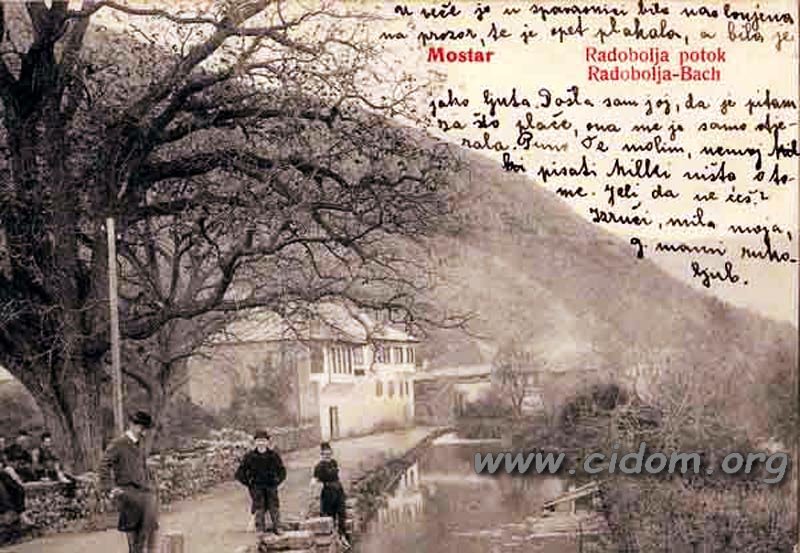 U veče je u spavaonici bila naslonjena
na prozor, te je opet plakala, a bila je
Mostar
Radobolja potok
Radobolja-Bach
jako ljuta. Došla sam joj, da je pitam
za što plače, ona me je samo otje-
rala. Puno Te molim, nemoj
pisati Milki ništa o to-
me. Jeli da ne ćeš?
Izruči, mila moja,
g mami ruko-
ljub.
www.cidom.org